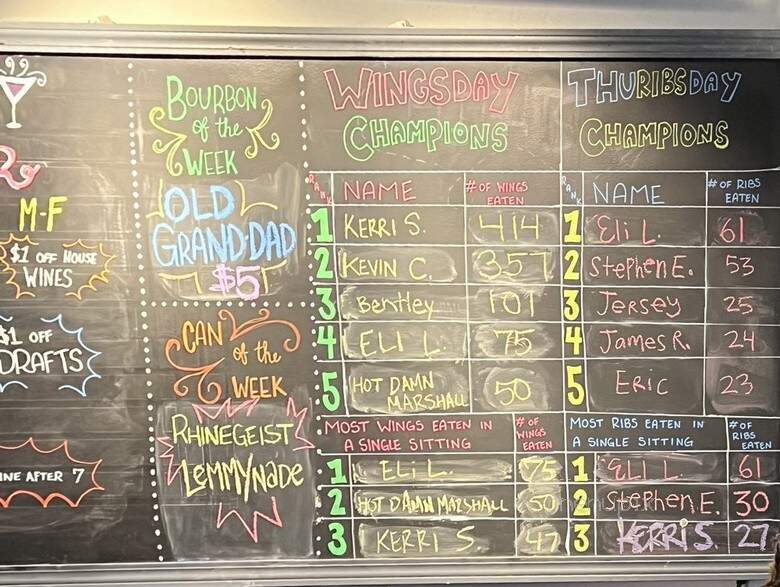 M-F
$1 OFF HOUSE
WINES
$1 OFF
DRAFTS
AFTER 7
BOURBON
of the
WEEK
OLD
GRAND-DAD
$5
CAN
of the
WEEK
RHINEGEIST
LEMMYNADE
WINGSDAY
CHAMPIONS
RANK NAME # OF WINGS EATEN
1 KERRI S. 414
2 KEVIN C. 357
3 Bentley 101
4 ELI L. 75
5 HOT DAMN MARSHALL 50
MOST WINGS EATEN IN # OF WINGS EATEN
A SINGLE SITTING
1 ELI L. 75
2 HOT DAMN MARSHALL 50
3 KERRI S 47
THURIBSDAY
CHAMPIONS
RANK NAME # OF RIBS EATEN
1 Eli L. 61
2 Stephen E. 53
3 JERSEY 25
4 James R. 24
5 ERIC 23
MOST RIBS EATEN IN # OF RIBS EATEN
A SINGLE SITTING
1 ELI L. 61
2 Stephen E. 30
3 KERRI S. 27